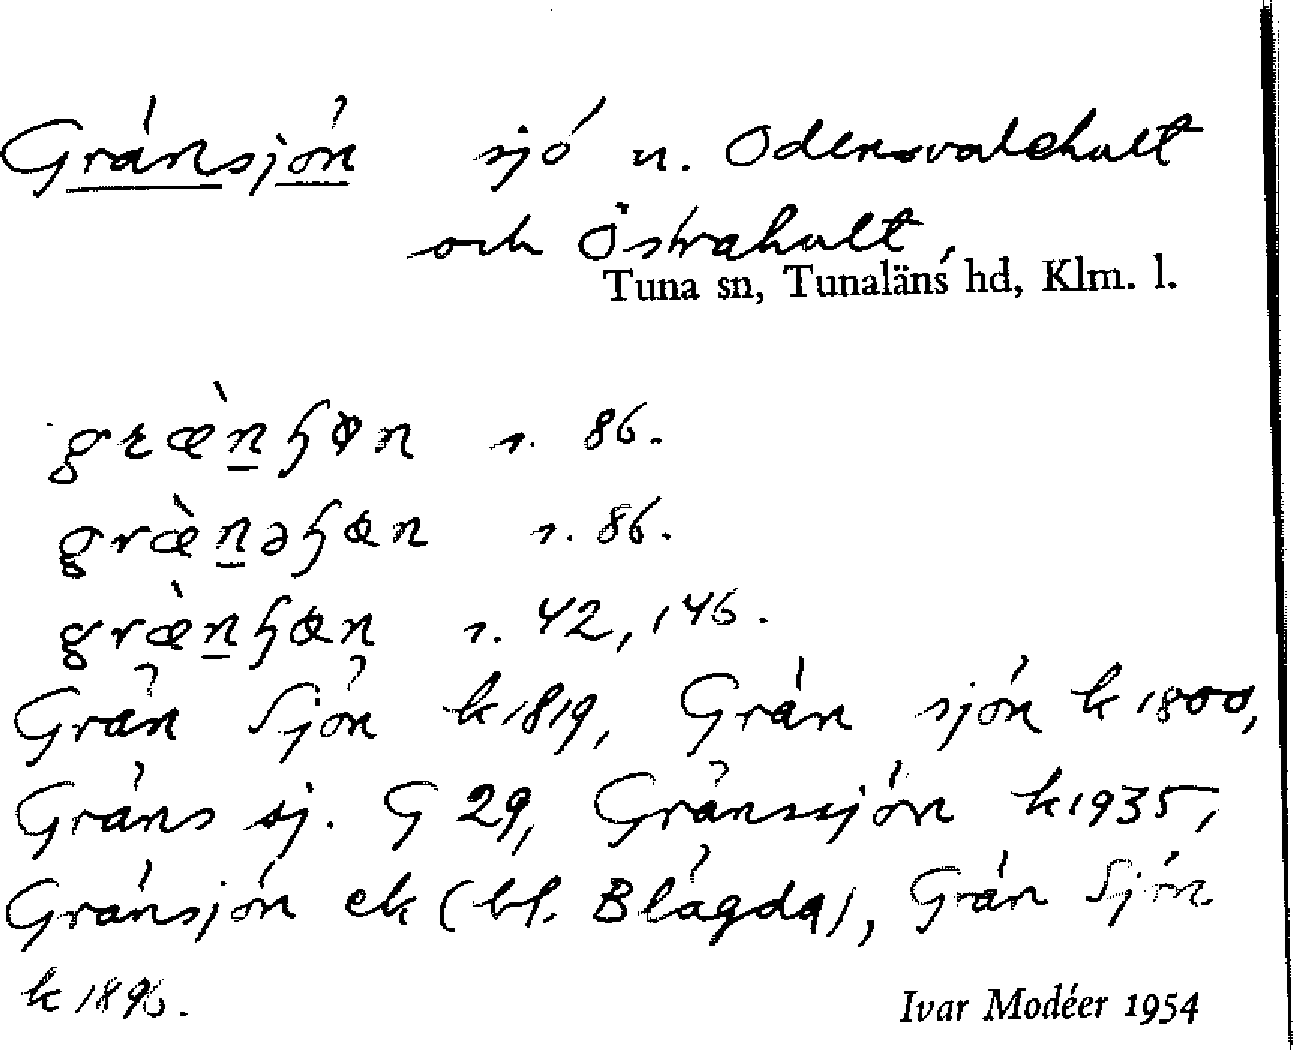 Gränsjön sjö n. Odensvalehult
och Östrahult,
Tuna sn, Tunaläns hd, Klm. l.
græ̀nɧøn s. 86.
græ̀nəɧœn s. 86.
græ̀nɧœn s. 42, 146.
Grän Sjön k 1819, Grän sjön k 1800,
Gräns sj. G 29, Gränssjön k 1935,
Gränsjön ek (bl. Blågda), Grän Sjön
k 1896.
Ivar Modéer 1954